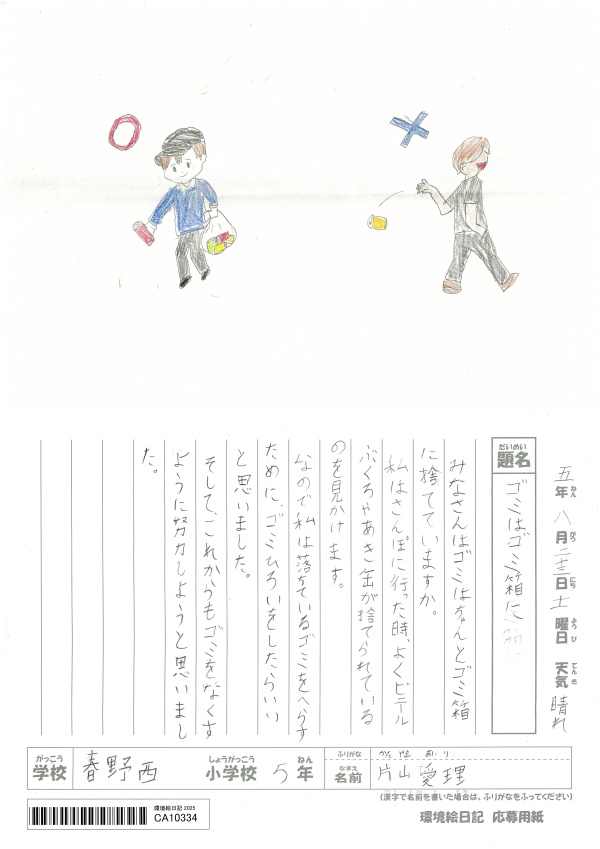 五年八月二十三日土曜日 天気 晴れ
ねん がつ にち ようび てんき
だいめい
題名 ゴミはゴミ箱に
みなさんはゴミはちゃんとゴミ箱
に捨てていますか。
私はさんぽに行った時、よくビニール
ぶくろやあき缶が捨てられている
のを見かけます。
なので私は落ちているゴミをへらす
ために、ゴミひろいをしたらいい
と思いました。
そして、これからもゴミをなくす
ように努力しようと思いまし
た。
がっこう しょうがっこう ねん
学校 春野西 小学校 5年
ふりがな かた やま あい り
なまえ
名前 片山 愛理
(漢字で名前を書いた場合は、ふりがなをふってください)
環境絵日記 応募用紙
環境絵日記 2025
CA10334